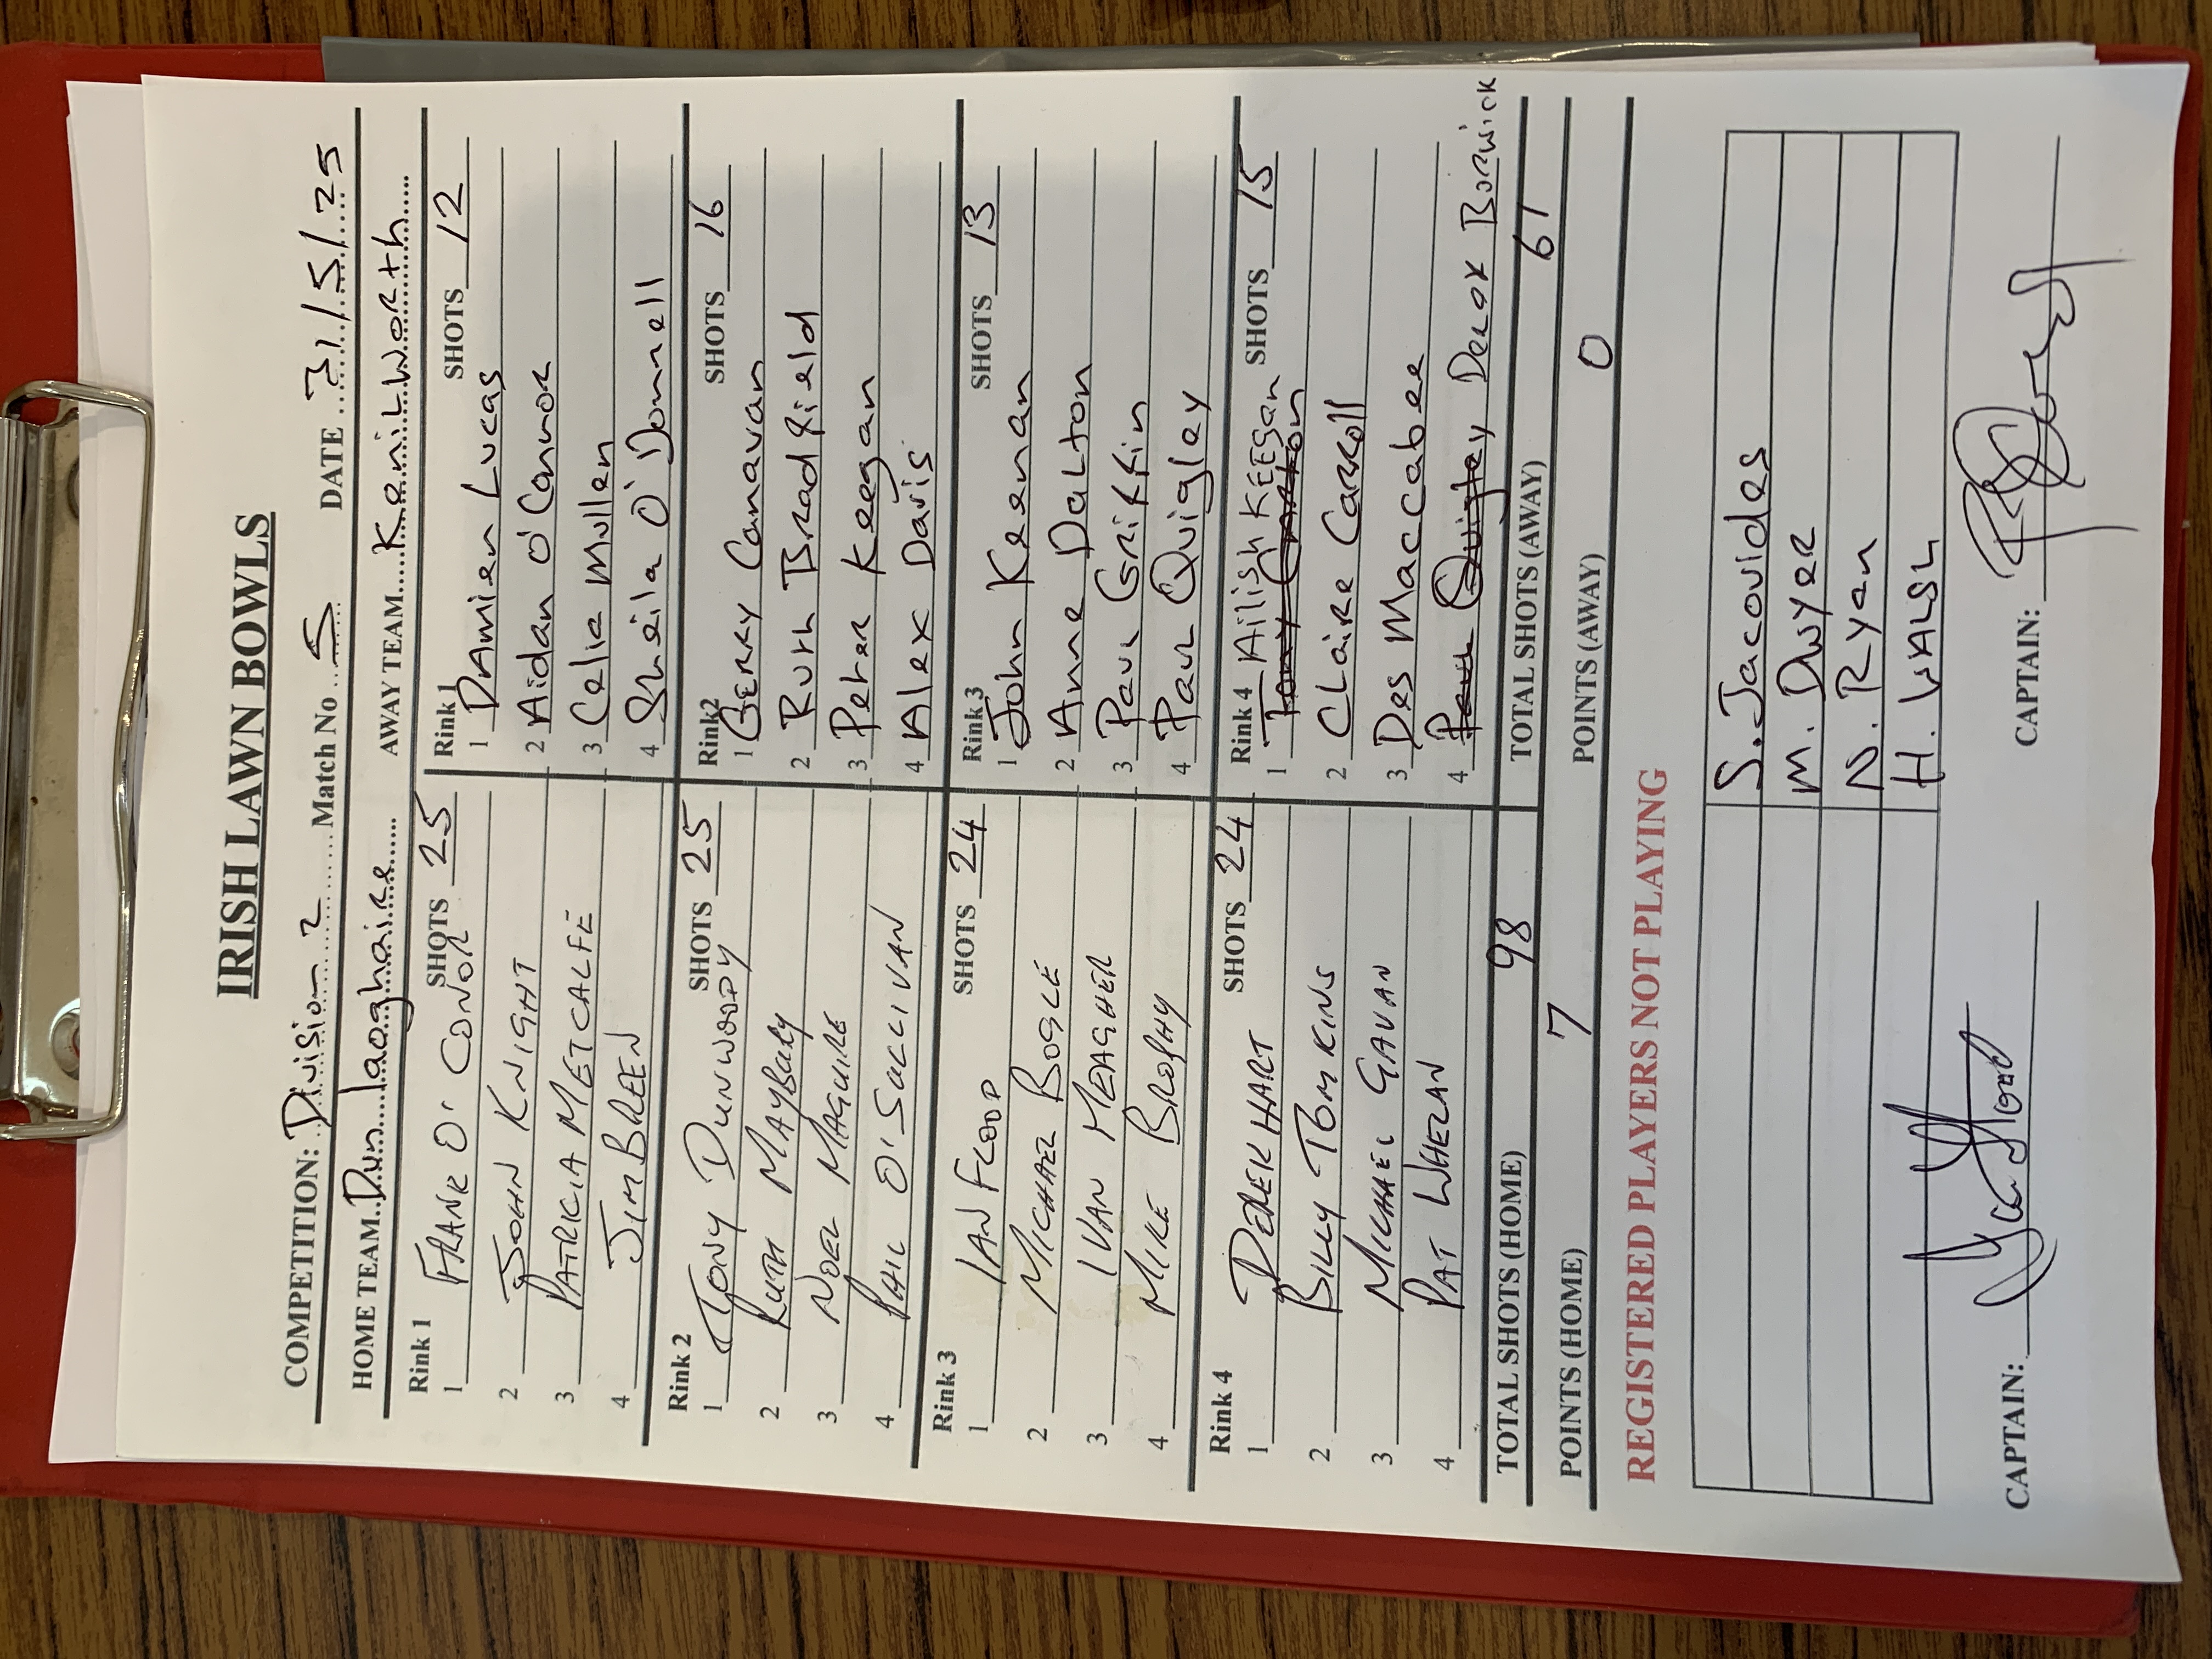 IRISH LAWN BOWLS
COMPETITION: Division 2 Match No 5 DATE 31/5/25
HOME TEAM Dun laoghaire AWAY TEAM Kenilworth
Rink 1 SHOTS 25
1 FRANK O'CONOR
2 JOHN KNIGHT
3 PATRICIA METCALFE
4 JIM BREEN
Rink 1 SHOTS 12
1 Damien Lucas
2 Aidan O'Connor
3 Celia Mullen
4 Sheila O'Donnell
Rink 2 SHOTS 25
1 TONY DUNWOODY
2 RUTH MAYBURY
3 NOEL MAGUIRE
4 PHIL O'SULLIVAN
Rink2 SHOTS 16
1 Gerry Canavan
2 Ruth Bradfield
3 Peter Keegan
4 Alex Davis
Rink 3 SHOTS 24
1 IAN FLOOD
2 MICHAEL BOGLE
3 IVAN MEAGHER
4 MIKE BROPHY
Rink 3 SHOTS 13
1 John Keenan
2 Anne Dalton
3 Paul Griffin
4 Paul Quigley
Rink 4 SHOTS 24
1 DEREK HART
2 BILLY TOMKINS
3 MICHAEL GAVAN
4 PAT WHELAN
Rink 4 Ailish KEEgan SHOTS 15
1
2 Claire Carroll
3 Des Maccabee
4 Paul Quigley Derek Borwick
TOTAL SHOTS (HOME) 98 TOTAL SHOTS (AWAY) 61
POINTS (HOME) 7 POINTS (AWAY) 0
REGISTERED PLAYERS NOT PLAYING
S. Jacovides
M. Dwyer
N. Ryan
H. WALSh
CAPTAIN: CAPTAIN: